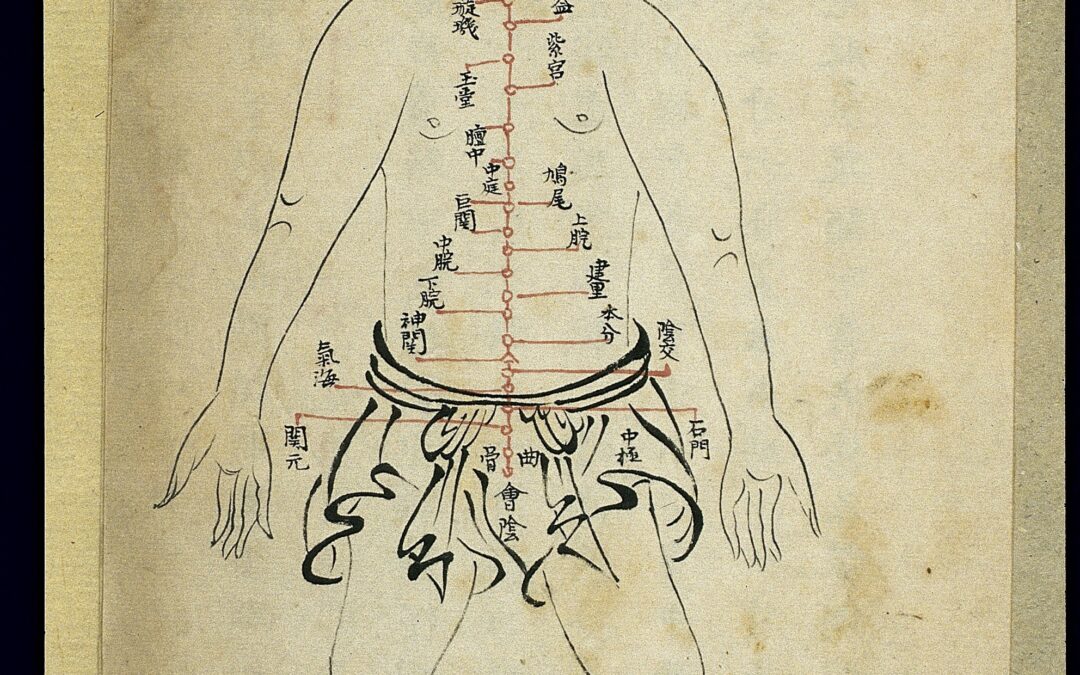 璇璣
紫宮
玉堂
膻中
中庭
鳩尾
巨関
上脘
中脘
建里
下脘
本分
神関
陰交
氣海
石門
関元
中極
曲骨
會陰